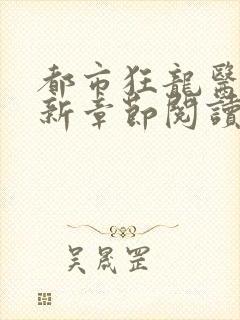 都市狂龍醫
新章節閱讀
吴晟罡